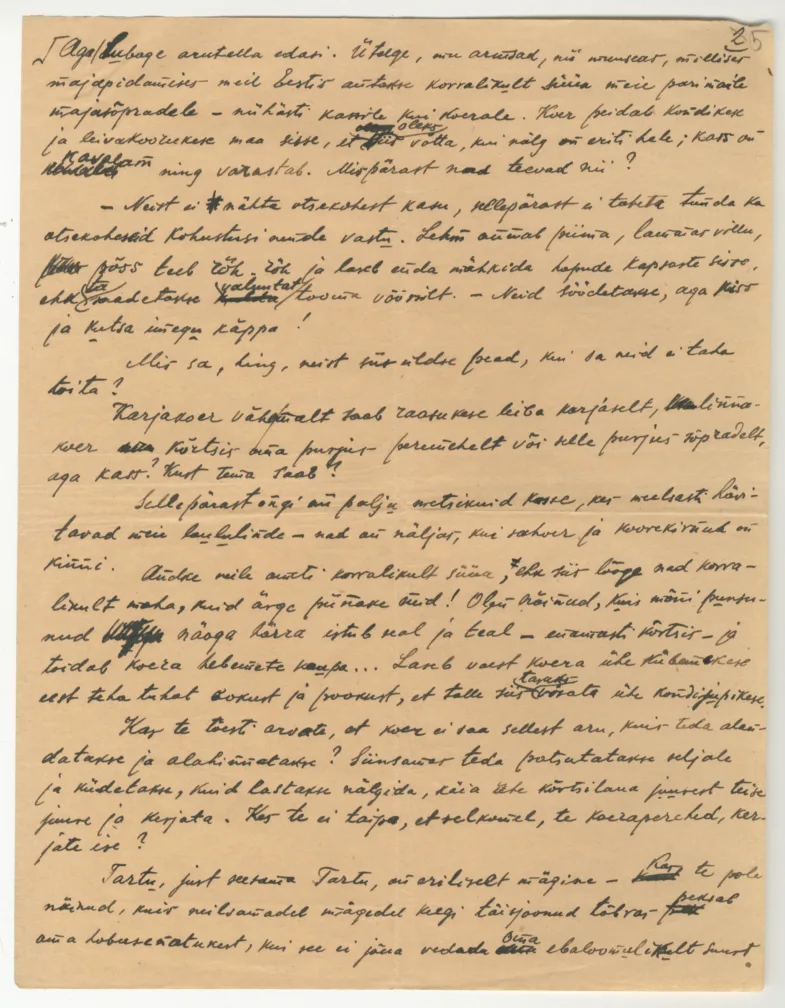 25
Aga lubage arutella edasi. Ütelge, mu armsad, nii muuseas, millises
majapidamises meil Eestis antakse korralikult süüa meie parimaile
majasõpradele – nühästi kassile kui koerale. Koer peidab kondikese
ja leivakoorukese maa sisse, et oleks võtta, kui nälg on eriti hele; kass on
kavalam ning varastab. Mispärast nad teevad nii?
– Neist ei nähta otsekohest kasu, sellepärast ei taheta tunda ka
otsekoheseid kohustusi nende vastu. Lehm annab piima, lammas villu,
põss teeb röh-röh ja laseb enda mähkida hapude kapsaste sisse,
ehk ta madetakse valuutat tooma võõrsilt. – Neid söödetakse, aga kiss
ja kutsa imegu käppa!
Mis sa, hing, neist siis üldse pead, kui sa neid ei taha
toita?
Karjakoer vähemalt saab raasukese leiba karjaselt, linna-
koer kõrtsis oma purjus peremehelt või selle purjus sõpradelt,
aga kass? Kust tema saab?
Sellepärast ongi nii palju metsikuid kasse, kes meelsasti hävi-
tavad meie laululinde – nad on näljas, kui sahver ja koorekirnud on
kinni.
Andke neile ometi korralikult süüa, ehk siis lööge nad korra-
likult maha, kuid ärge piinake neid! Olen näinud, kuis mõni punsu-
nud näoga härra istub seal ja teal – enamasti kõrtsis – ja
toidab koera helvemete kaupa... Laseb vaest koera ühe kübemekese
eest teha tuhat hokust ja pookust, et talle siis tasuks visata ühe kondijupikese.
Kas te tõesti arvate, et koer ei saa sellest aru, kuis teda alan-
datakse ja alahinnatakse? Siinsamas teda patsutatakse seljale
ja kiidetakse, kuid lastakse nälgida, käia ühe kõrtsilaua juurest teise
juure ja kerjata. Kas te ei taipa, et selkomel, te koeraperemehed, ker-
jate ise?
Tartu, just seesama Tartu, on eriliselt mägine – Kas te pole
näinud, kuis neilsamadel mägedel keegi täisjoonud tõbras peksab
oma hobusenatukest, kui see ei jõua vedada oma ebaloomulikult suurt